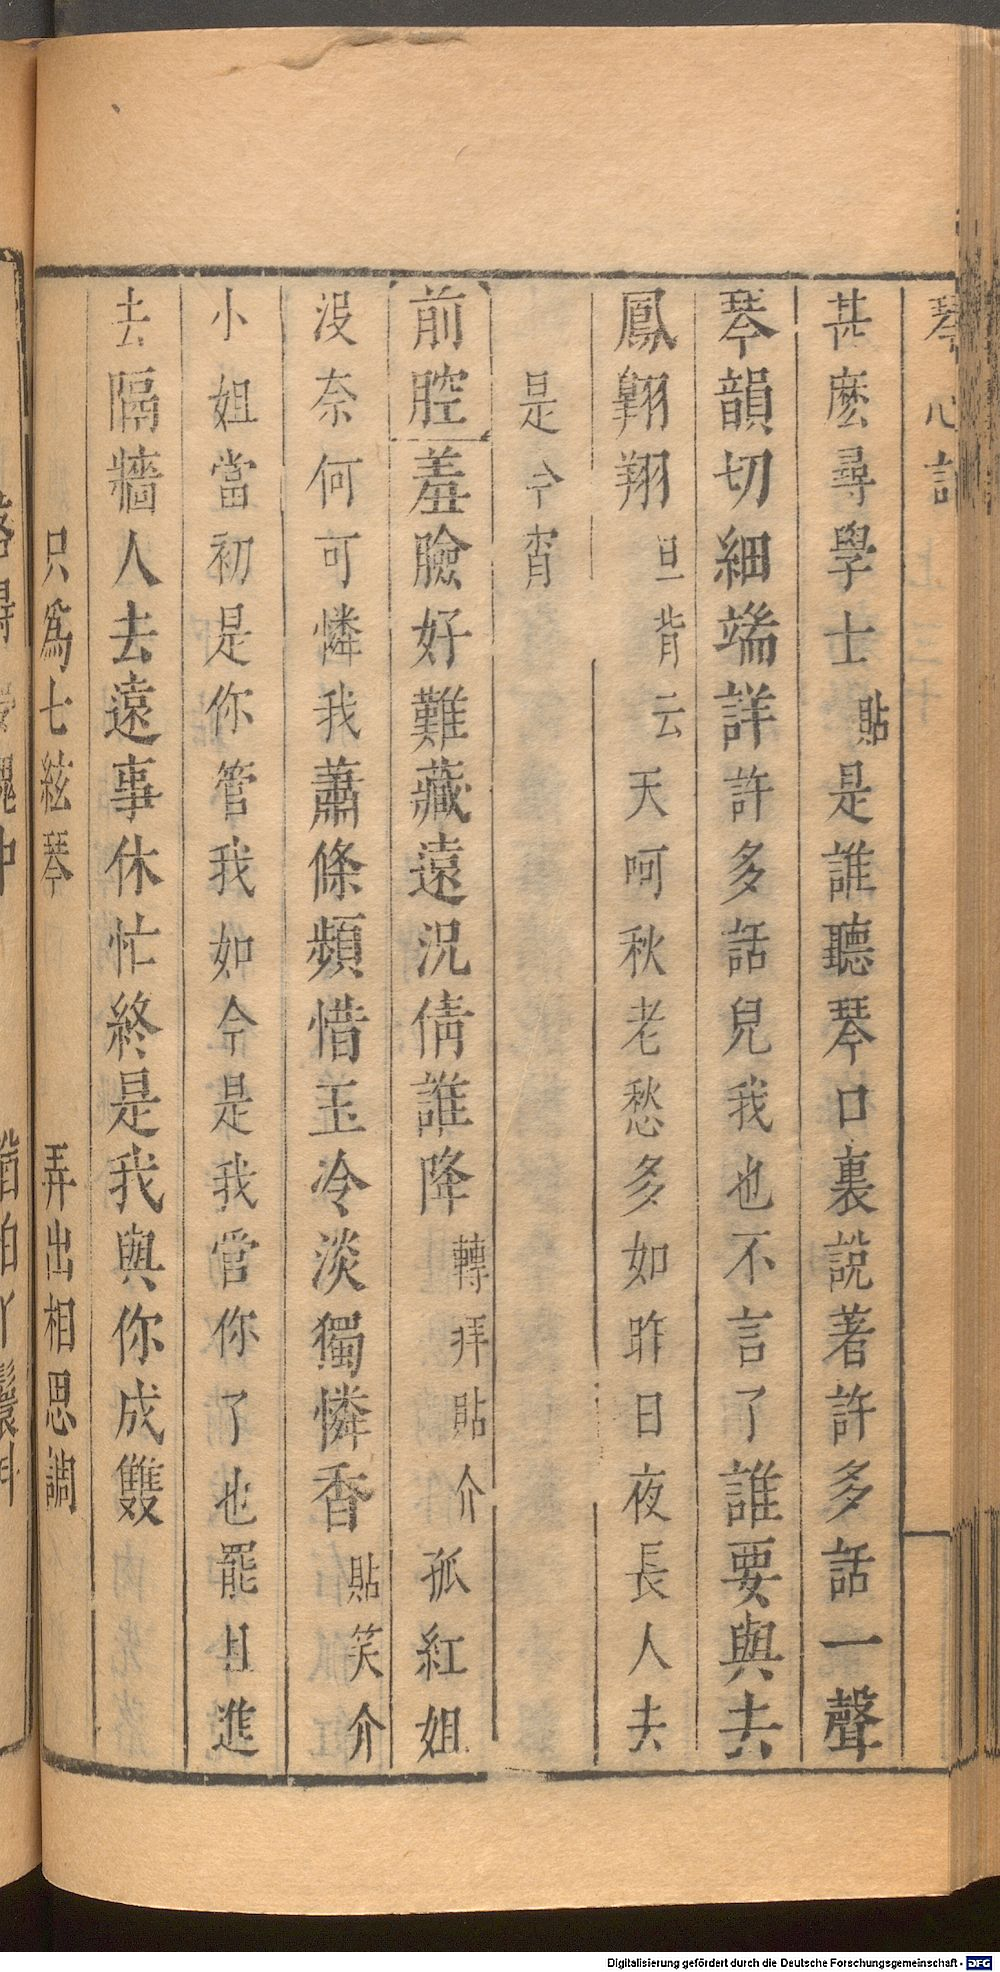 琴心記
甚麽尋學士貼是誰聽琴口裏說著許多話一聲
琴韻切細端詳許多話兒我也不言了誰要與去
鳳翺翔旦背云天呵秋老愁多如昨日夜長人去
是今宵
前腔羞臉好難藏遠況倩誰降轉拜貼介孤紅姐
沒奈何可憐我蕭條頻惜玉冷淡獨憐香貼笑介
小姐當初是你管我如今是我官你了也罷且進
去隔牆人去遠事休忙終是我與你成雙
只爲七絃琴 弄出相思調
Digitalisierung gefördert durch die Deutsche Forschungsgemeinschaft - DFG